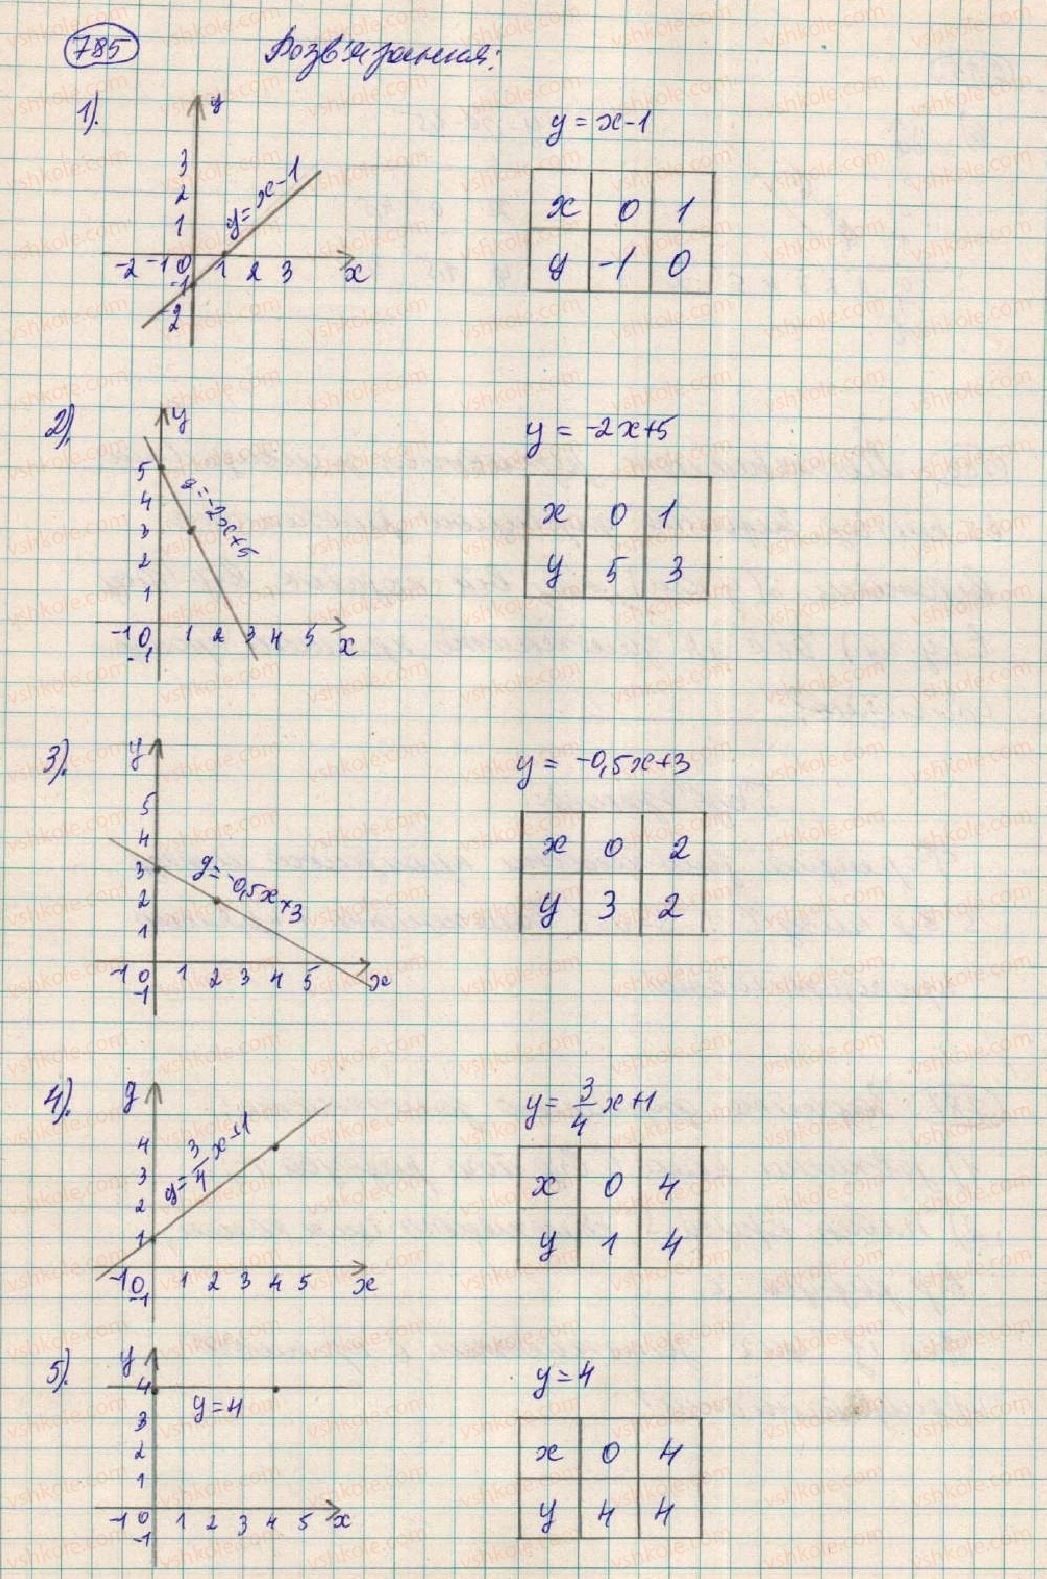 785 Розв'язання:
1).
y
3
2
1
-2 -1 0 1 2 3 x
-1
2
y = x-1
y = x-1
x 0 1
y -1 0
2).
y
5
4
3
2
1
-1 0 1 2 3 4 5 x
-1
y=-2x+5
y = -2x+5
x 0 1
y 5 3
3).
y
5
4
3
2
1
-1 0 1 2 3 4 5 x
-1
y=-0,5x+3
y = -0,5x+3
x 0 2
y 3 2
4).
y
4
3
2
1
-1 0 1 2 3 4 5 x
-1
y= 3/4 x+1
y= 3/4 x+1
x 0 4
y 1 4
5).
y
4
3
2
1
-1 0 1 2 3 4 5 x
-1
y=4
y=4
x 0 4
y 4 4
vshkole.com